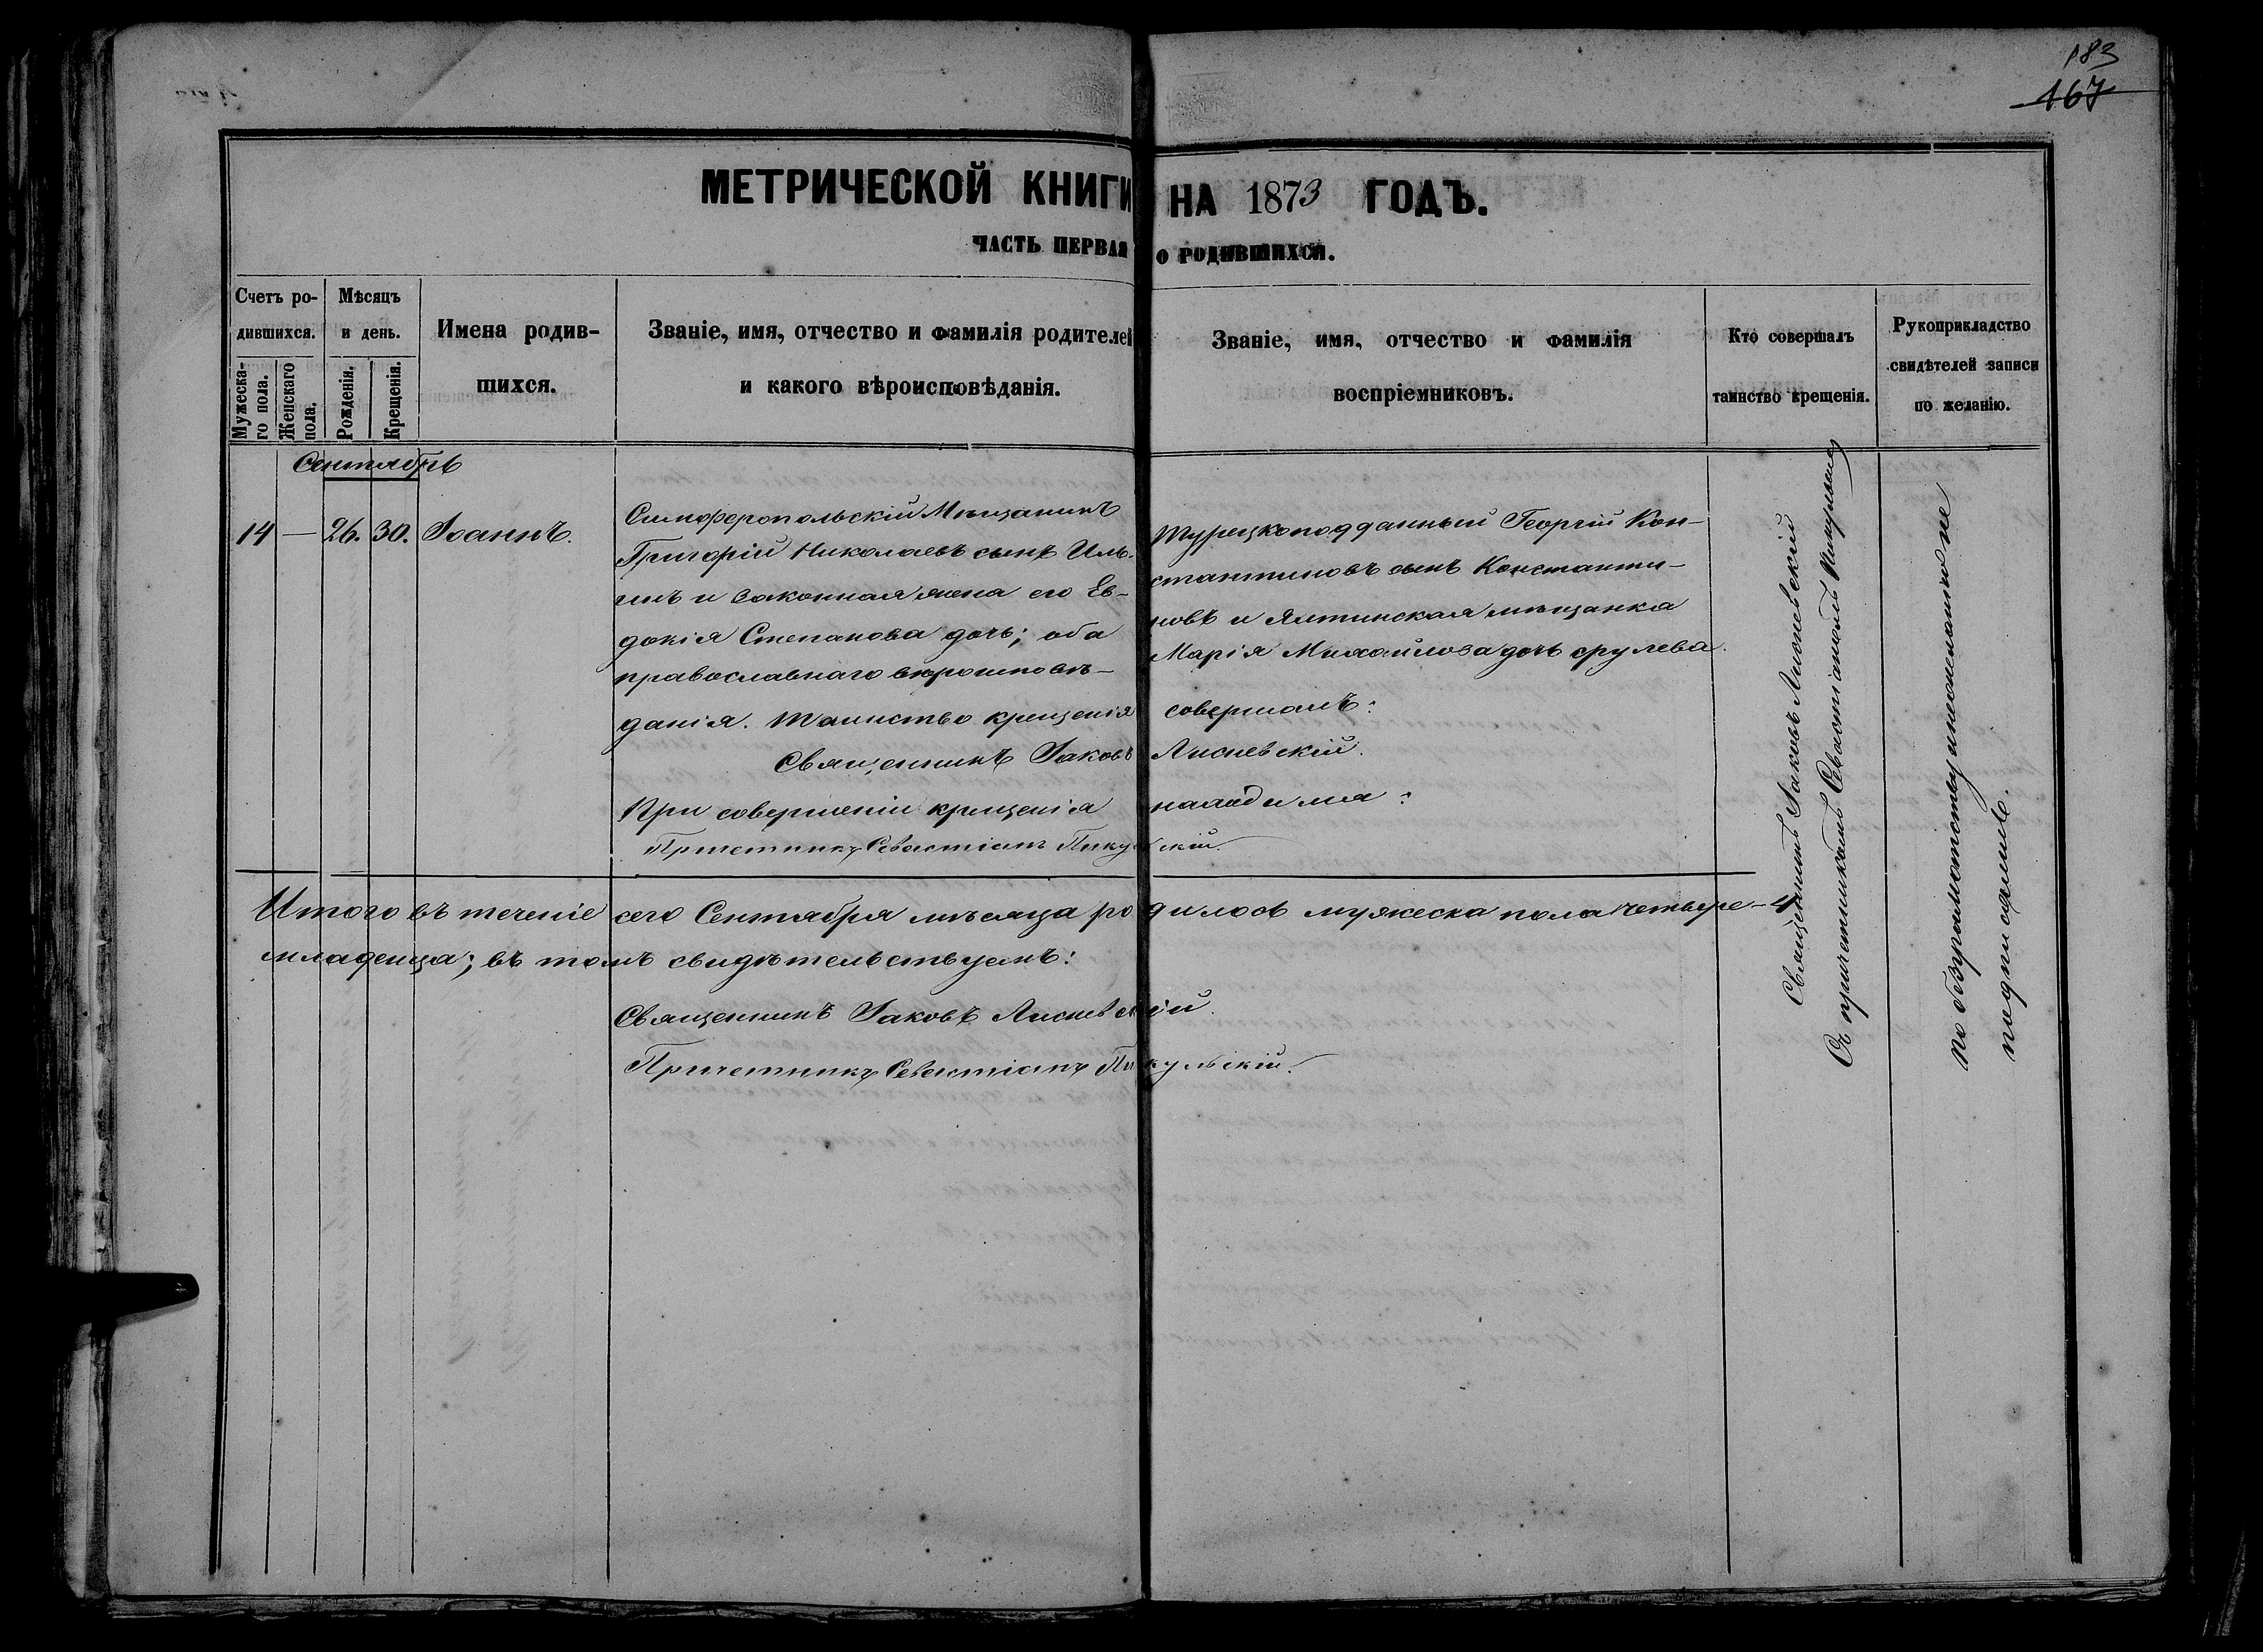 183
167
МЕТРИЧЕСКОЙ КНИГИ НА 1873 ГОДЪ.
ЧАСТЬ ПЕРВАЯ О РОДИВШИХСЯ.
Счетъ ро-
дившихся.
Мужеска-
го пола.
Женскаго
пола.
Мѣсяцъ
и день.
Рожденія.
Крещенія.
Имена родив-
шихся.
Званіе, имя, отчество и фамилія родителей
и какого вѣроисповѣданія.
Званіе, имя, отчество и фамилія
воспріемниковъ.
Кто совершалъ
таинство крещенія.
Рукоприкладство
свидѣтелей записи
по желанію.
Сентябрь
14 — 26. 30. Іоаннъ.
Симферопольскій Мѣщанинъ
Григорій Николаевъ сынъ Иль-
инъ и законная жена его Ев-
докія Степанова дочь; оба
православнаго вѣроисповѣ-
данія. Таинство крещенія совершалъ:
Священникъ Іаковъ Лисневскій.
При совершеніи крещенія находился:
Причетникъ Севастіанъ Пикульскій.
Турецкоподданный Георгій Кон-
стантиновъ сынъ Константи-
новъ и Ялтинская мѣщанка
Марія Михайлова дочь
Священникъ Іаковъ Лисневскій
Съ причетникомъ Севастіаномъ Пикульским
по безграмотству и нежеланію не
подписались.
Итого въ теченіе сего Сентября мѣсяца родилось мужеска пола четыре – 4
младенца; въ томъ свидѣтельствуемъ:
Священникъ Іаковъ Лисневскій.
Причетникъ Севастіанъ Пикульскій.